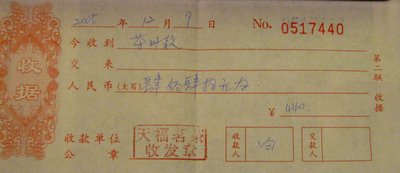 2005 年 12 月 9 日 No. 0517440
今收到 茶叶款
交来
人民币 (大写) 肆佰肆拾元
¥ 440
收款单位 公章
天福茗茶
收发章
收款人
交款人
第二联 收据
收据